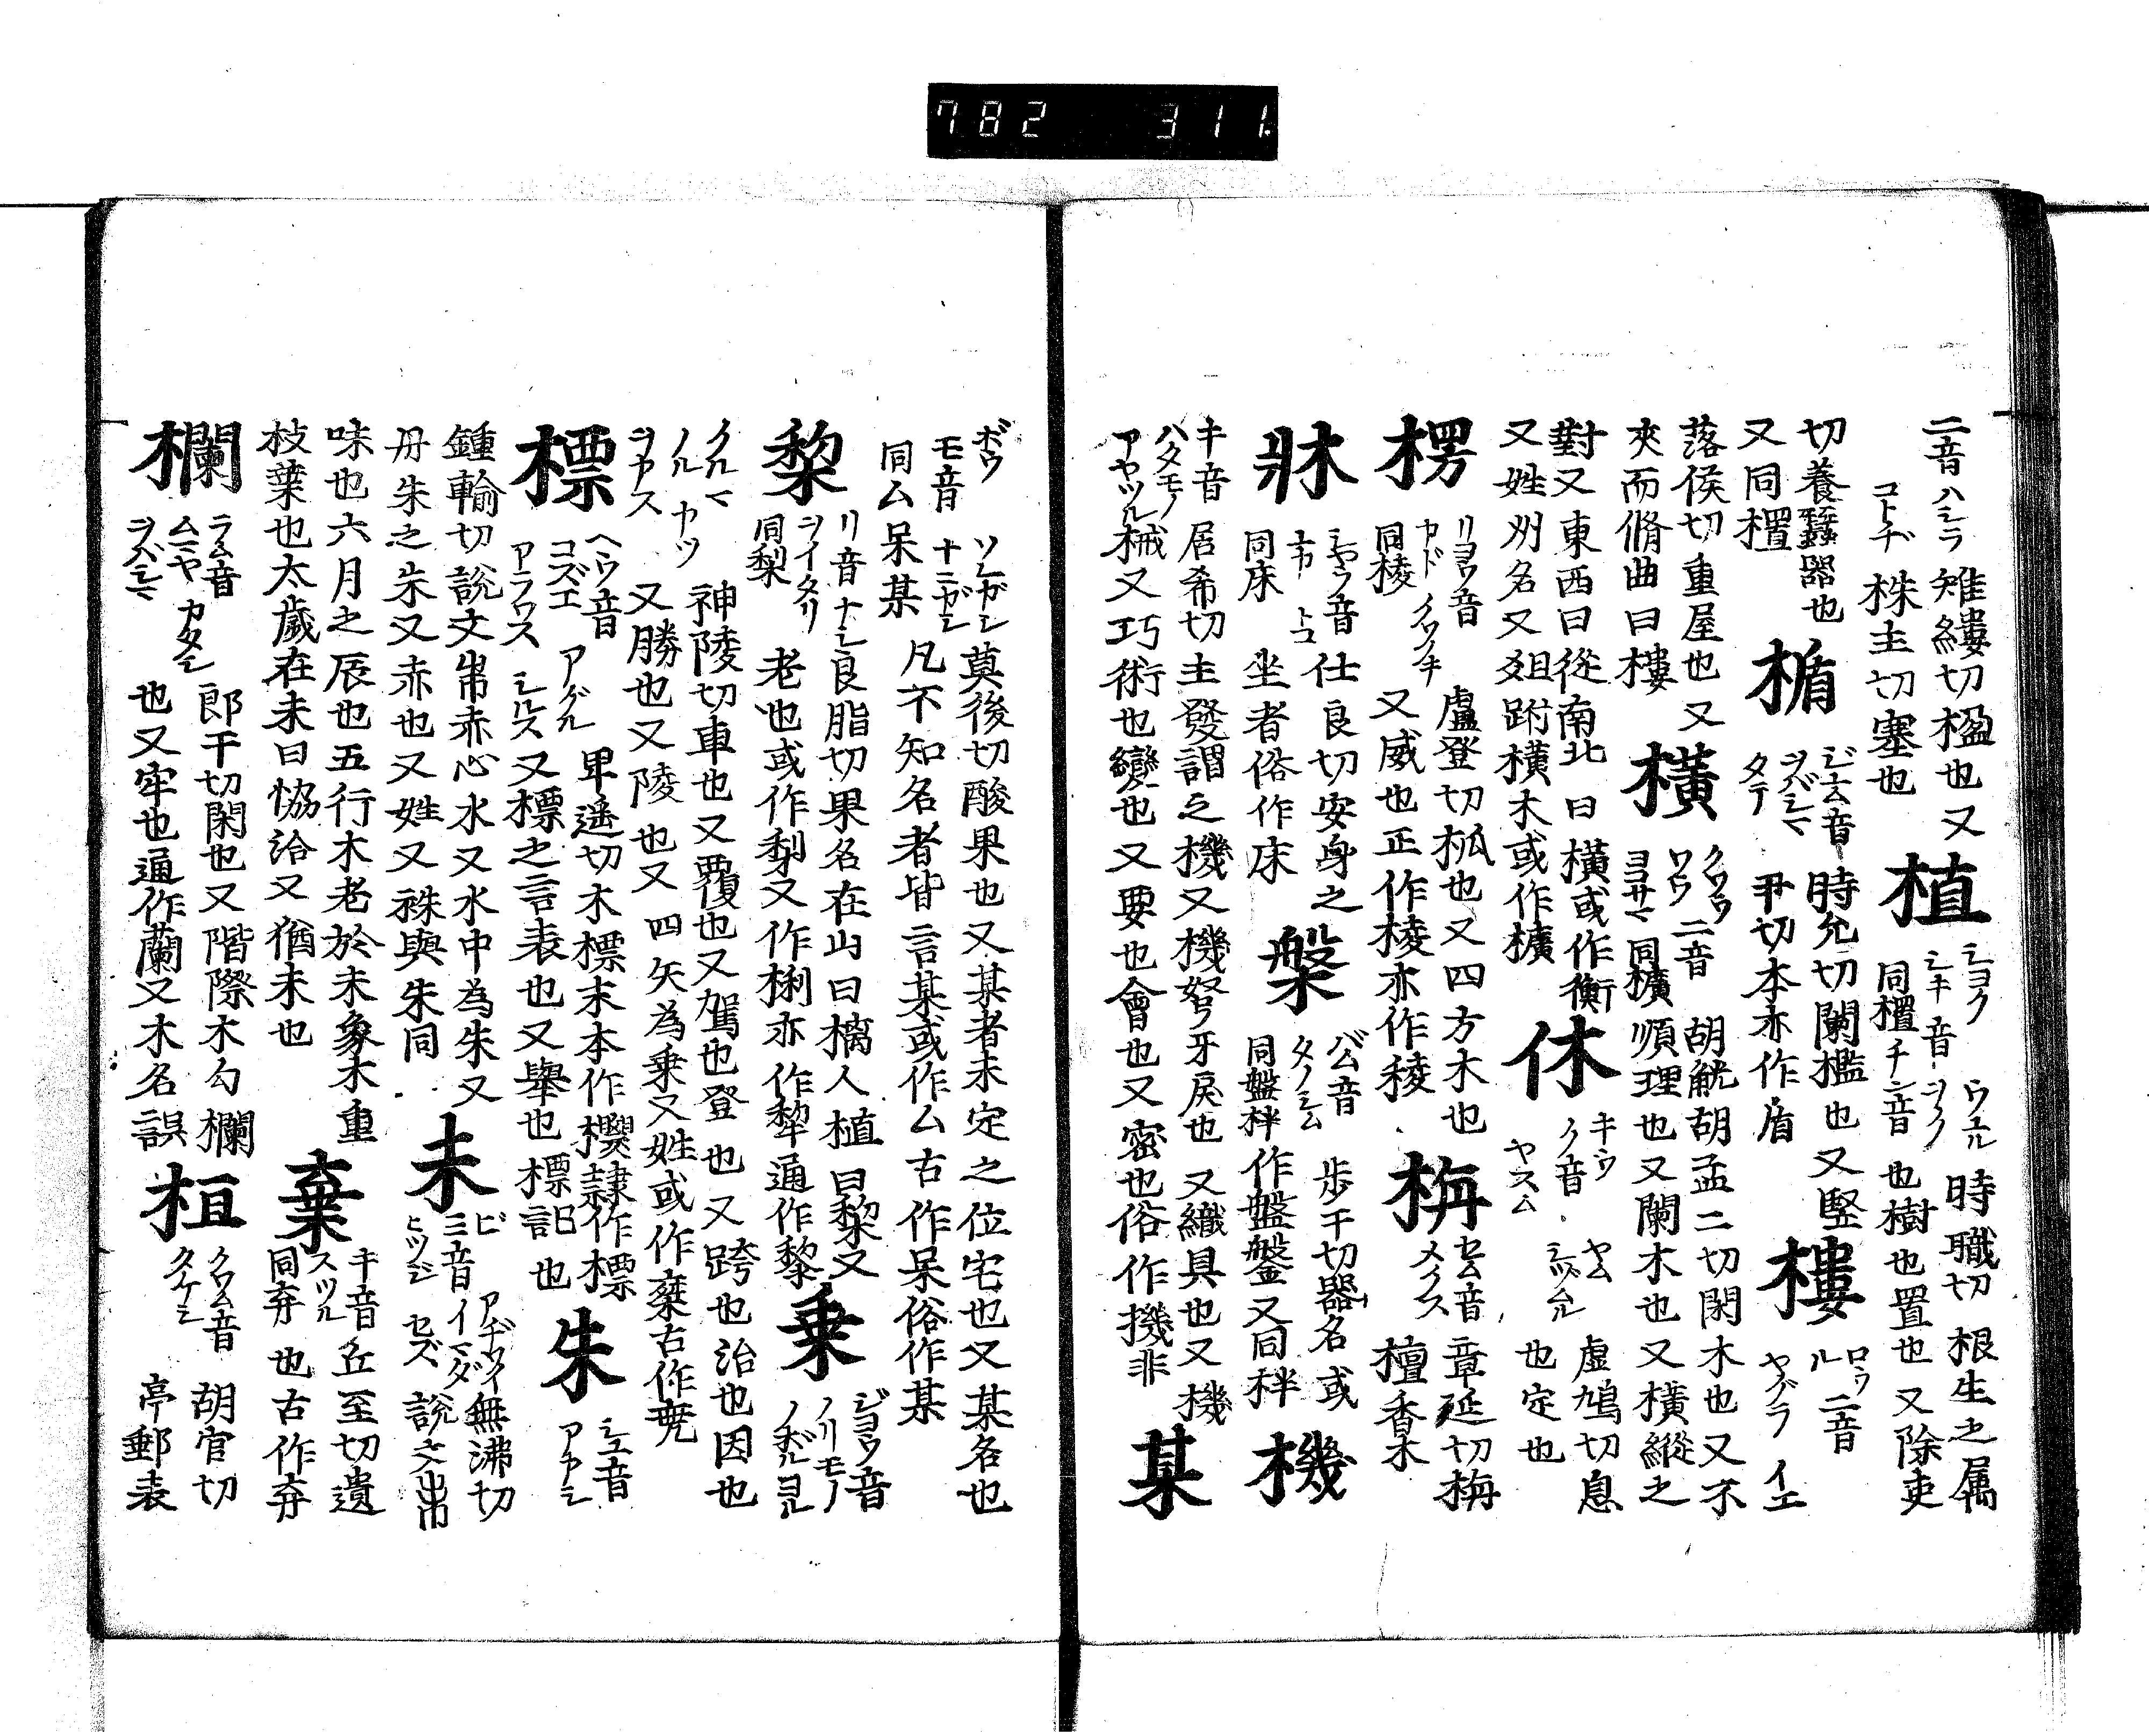 782 311.
二音ハシラ 雉縷切楹也又
コトヂ 株主切塞也
植
シヨク シキ音 ウユル ヲク 時職切 根生之属
同櫃チ音 也樹也置也又除吏
切養蠶器也
又同櫃
楯
ジユム音 時允切闌檻也又竪
ヲバシマ タテ 尹切本亦作盾
樓
ロウ ル 二音
ヤグラ イエ
落侯切重屋也又
夾而脩曲曰樓
横
クワウ ワウ 二音 胡觥胡孟二切閑木也又不
ヨコサマ 同㯲 順理也又闌木也又横縱之
對又東西曰從南北曰横或作衡
又姓州名又爼跗横木或作㯲
休
キウ ク音 ヤム 虚鳩切息
ヤスム シヅムル 也定也
楞
リヨウ音 盧登切柧也又四方木也
カド 同棱 又威也正作棱亦作稜
栴
セム音 章延切栴
檀香木
牀
シヤウ音 仕良切安身之
同床 トコ 坐者俗作床
槃
バム音 歩干切器名或
タノシム 同盤柈 作盤鎜又同柈
機
キ音 居希切主發謂之機又機弩牙戻也又織具也又機
ハタモノ アヤツル 械又巧術也變也又要也會也又密也俗作撥非
某
ボウ モ音 莫後切酸果也又某者未定之位宅也又某名也
同ム呆某 凡不知名者皆言某或作ム古作呆俗作某
棃
リ音ナシ 良脂切果名在山曰樆人植曰棃又
ヲイタリ 同梨 老也或作梨又作梸亦作犂通作黎
乗
ジヨウ音 ノリモノ ノボル
クルマ ノル カツ 神陵切車也又覆也又駕也登也又跨也治也因也
又勝也又陵也又四矢為乗又姓或作椉古作
標
ヘウ音 コズエ アグル 卑遥切木標末本作㯹隷作標
アラワス シルス 又標之言表也又舉也標記也
朱
シユ音 アカシ
鍾輸切説文赤心木又水中為朱又
丹朱之朱又赤也又姓又祩與朱同
未
ビ ミ音 アヂワイ イマダ 無沸切
ヒツジ セズ 説文
味也六月之辰也五行木老於未象木重
枝葉也太歳在未曰協洽又猶未也
棄
キ音 丘至切遺
スツル 同弃 也古作弃
欄
ラム音 カタシ 郎干切閑也又階際木勾欄
ヲバシマ 也又牢也通作蘭又木名誤
桓
クワム音 胡官切
タケシ 亭郵表